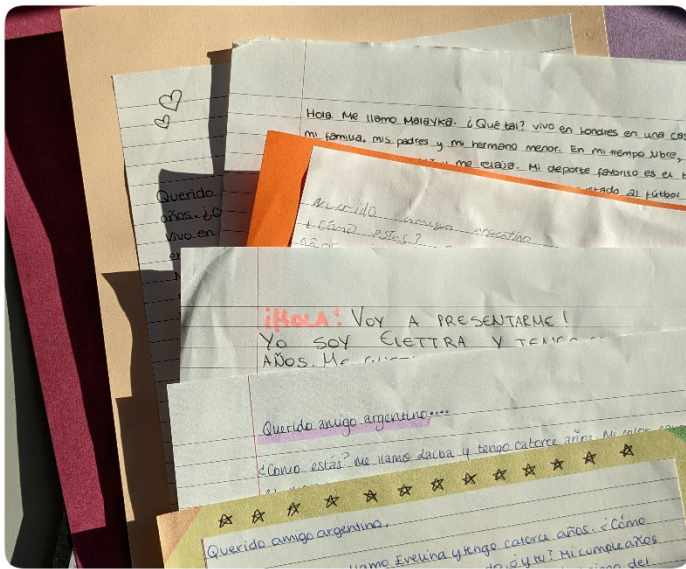 Hola. Me llamo Malayka. ¿Qué tal? vivo en Londres en una cas
mi familia, mis padres y mi hermano menor. En mi tiempo libre,
me relaja. Mi deporte favorito es el
al fútbol
Querido
años. ¿C
Vivo en
Querido amigo argentino
¿Cómo estás?
años
¡HOLA! VOY A PRESENTARME!
YO SOY ELETTRA Y TENGO
AÑOS. ME
Querido amigo argentino....
¿Cómo estás? me llamo daiba y tengo catorce años. Mi
Querido amigo argentino,
llamo Evelina y tengo catorce años. ¿Cómo
¿y tu? Mi cumpleaños
del